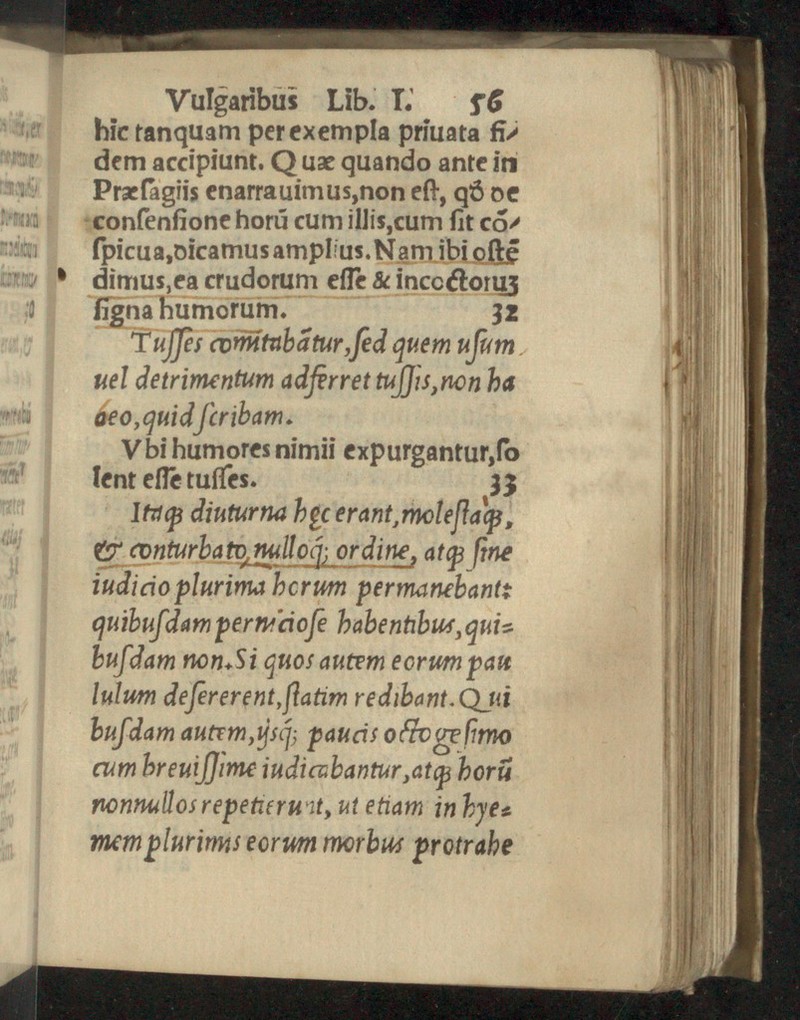 Vulgaribus Lib. I. 56
hic tanquam per exempla priuata fi⸗
dem accipiunt. Quæ quando ante in
Præſagiis enarrauimus,non eſt, qđ de
conſenſione horū cum illis,cum ſit cō⸗
ſpicua,dicamus amplius. Nam ibi oſtē
dimus,ea crudorum eſſe & incoctoruꝫ
ſigna humorum. 32
Tuſſes comitabātur,ſed quem uſum
uel detrimentum adferret tuſſis,non ha
beo,quid ſcribam.
Vbi humores nimii expurgantur,ſo
lent eſſe tuſſes. 33
Itaqꝫ diuturna hęc erant,moleſtaqꝫ,
& conturbato,nulloq́; ordine, atqꝫ ſine
iudicio plurima horum permanebant:
quibuſdam pernicioſe habentibus,qui⸗
buſdam non.Si quos autem eorum pau
lulum deſererent,ſtatim redibant.Qui
buſdam autem,ijsq́; paucis octogeſimo
cum breuiſſime iudicabantur,atqꝫ horū
nonnullos repetierunt, ut etiam in hye⸗
mem plurimis eorum morbus protrahe